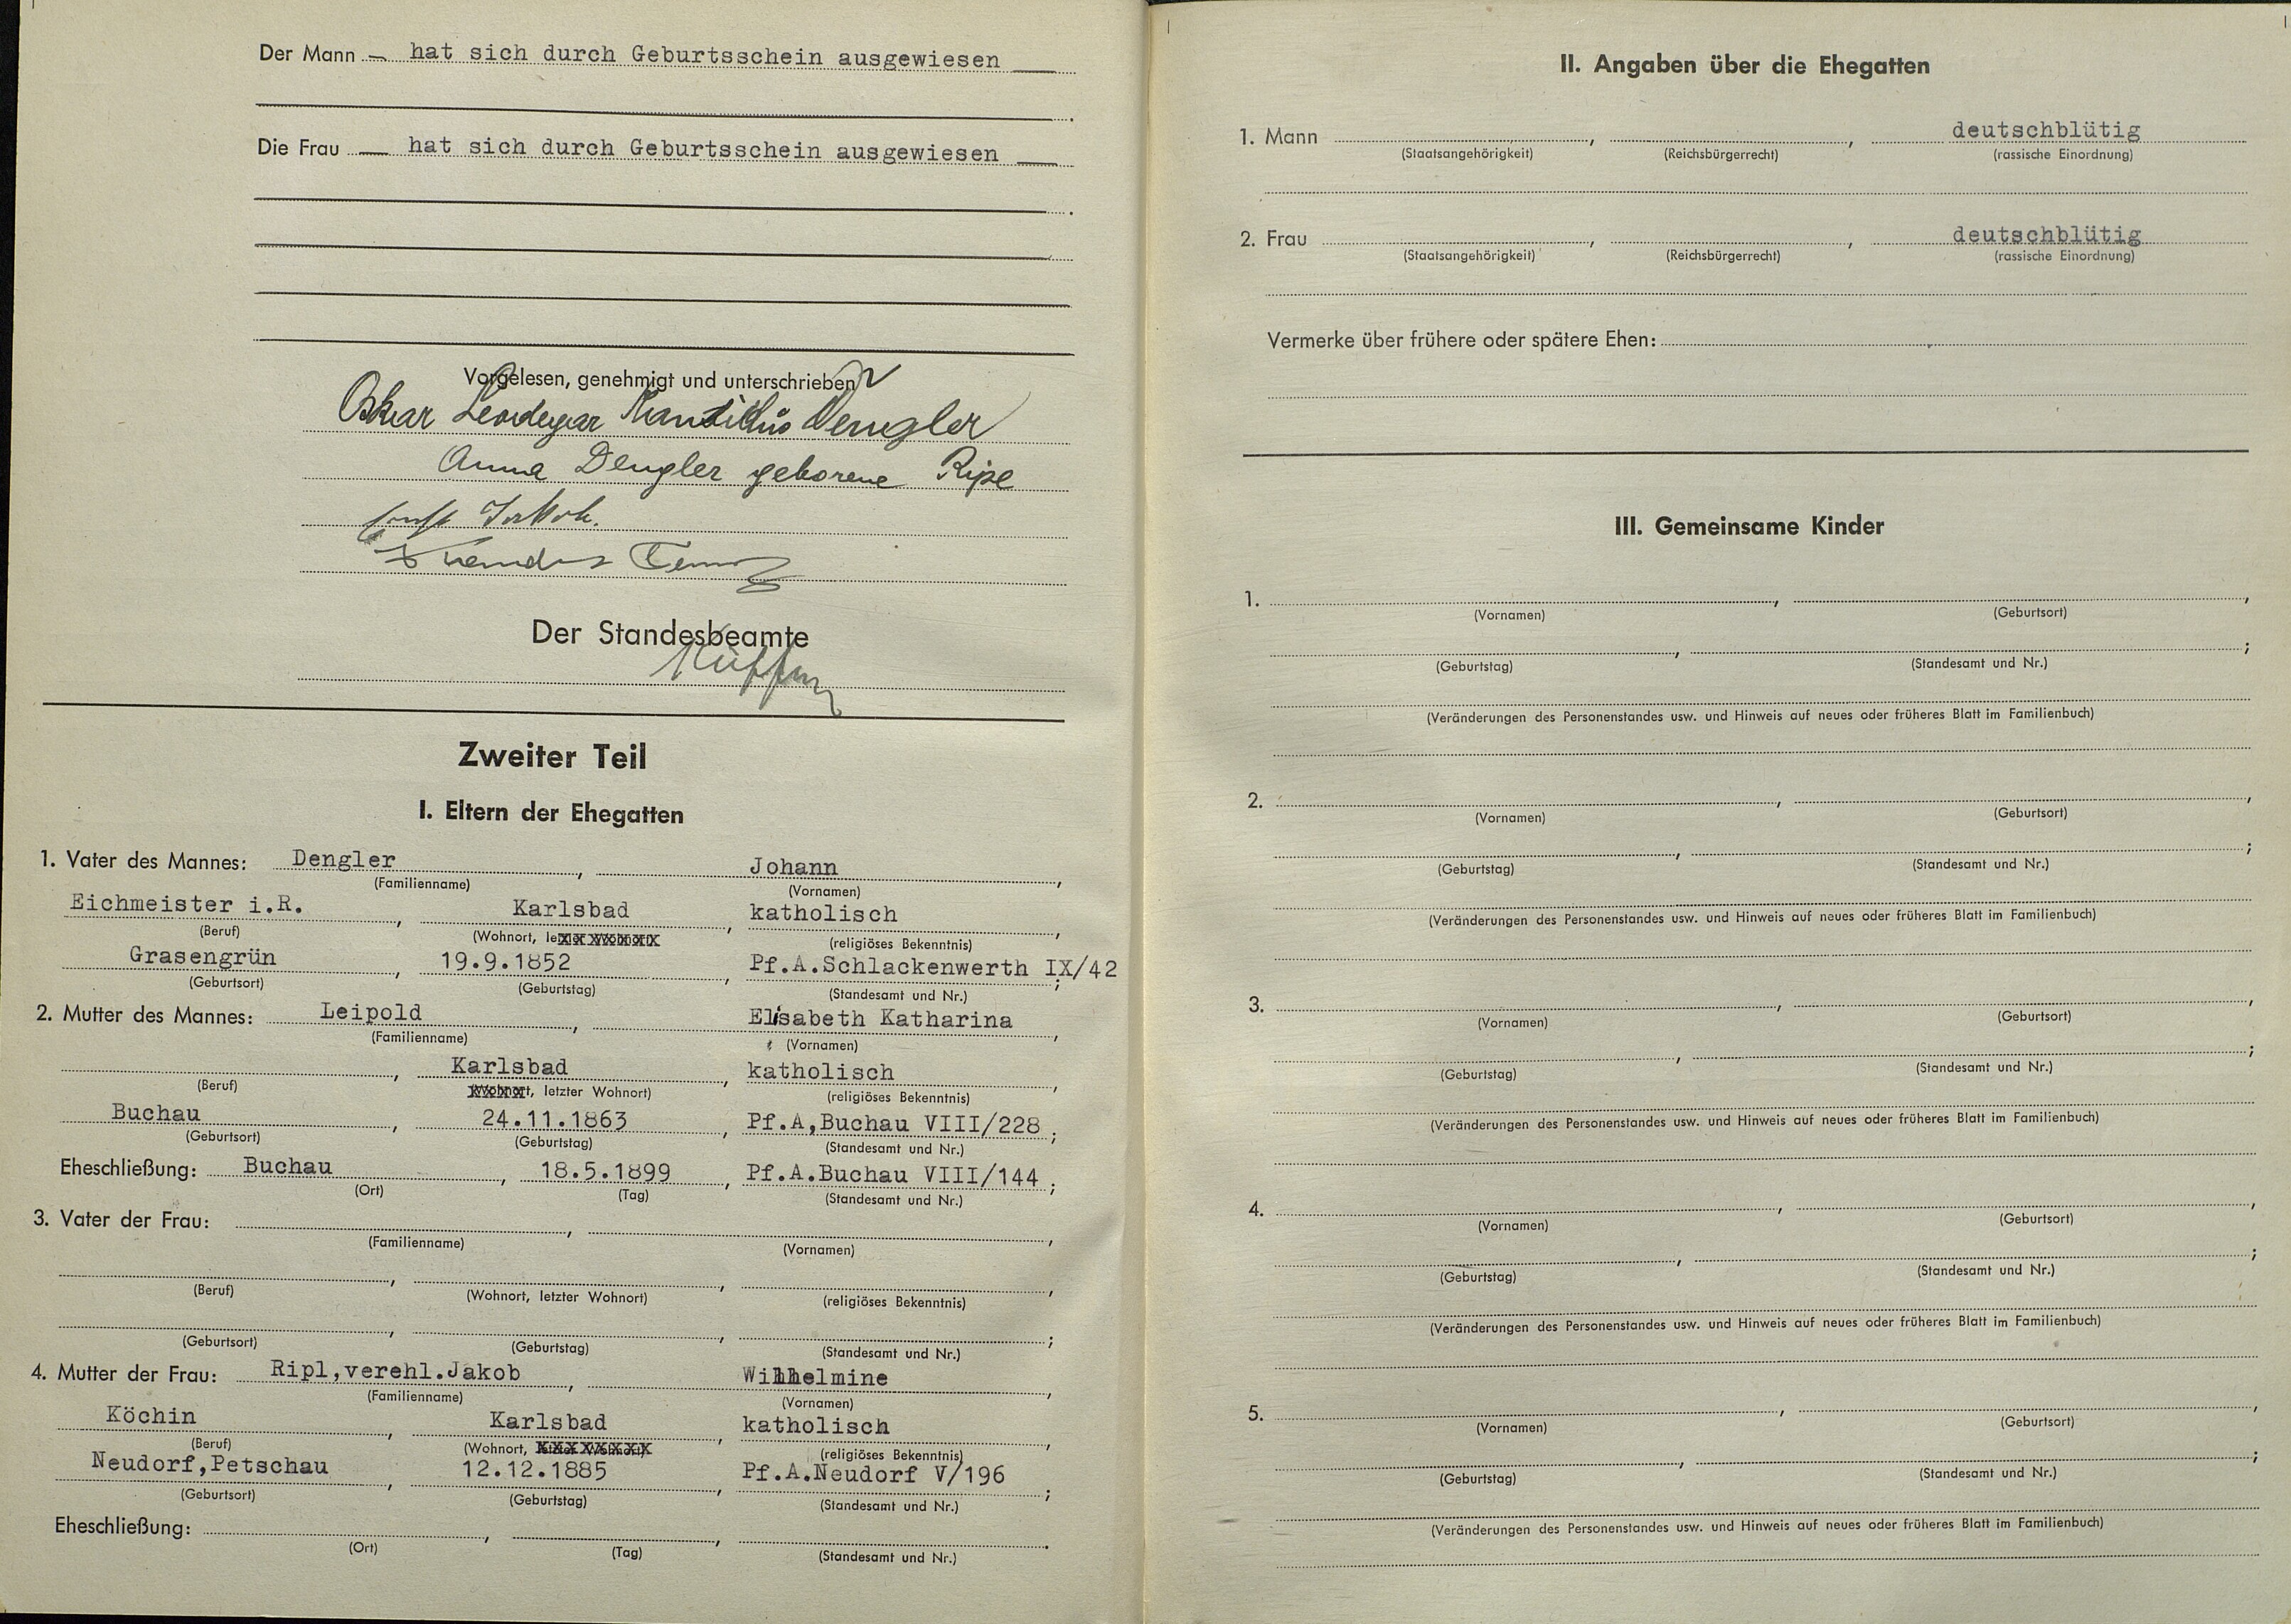 Der Mann — hat sich durch Geburtsschein ausgewiesen
Die Frau — hat sich durch Geburtsschein ausgewiesen
Vorgelesen, genehmigt und unterschrieben
Oskar Leodegar Dengler
Anna Dengler geborene Ripl
Jakob.
Der Standesbeamte
Zweiter Teil
I. Eltern der Ehegatten
1. Vater des Mannes: Dengler, Johann,
(Familienname) (Vornamen)
Eichmeister i.R., Karlsbad, katholisch,
(Beruf) (Wohnort, (religiöses Bekenntnis)
Grasengrün, 19.9.1852, Pf.A.Schlackenwerth IX/42;
(Geburtsort) (Geburtstag) (Standesamt und Nr.)
2. Mutter des Mannes: Leipold, Elisabeth Katharina,
(Familienname) (Vornamen)
, Karlsbad, katholisch,
(Beruf) letzter Wohnort) (religiöses Bekenntnis)
Buchau, 24.11.1863, Pf.A,Buchau VIII/228;
(Geburtsort) (Geburtstag) (Standesamt und Nr.)
Eheschließung: Buchau, 18.5.1899, Pf.A.Buchau VIII/144;
(Ort) (Tag) (Standesamt und Nr.)
3. Vater der Frau: , ,
(Familienname) (Vornamen)
, , ,
(Beruf) (Wohnort, letzter Wohnort) (religiöses Bekenntnis)
, , ;
(Geburtsort) (Geburtstag) (Standesamt und Nr.)
4. Mutter der Frau: Ripl,verehl.Jakob, Wilhelmine,
(Familienname) (Vornamen)
Köchin, Karlsbad, katholisch,
(Beruf) (Wohnort, (religiöses Bekenntnis)
Neudorf,Petschau, 12.12.1885, Pf.A.Neudorf V/196;
(Geburtsort) (Geburtstag) (Standesamt und Nr.)
Eheschließung: , , .
(Ort) (Tag) (Standesamt und Nr.)
II. Angaben über die Ehegatten
1. Mann , , deutschblütig
(Staatsangehörigkeit) (Reichsbürgerrecht) (rassische Einordnung)
2. Frau , , deutschblütig
(Staatsangehörigkeit) (Reichsbürgerrecht) (rassische Einordnung)
Vermerke über frühere oder spätere Ehen:
III. Gemeinsame Kinder
1. , ,
(Vornamen) (Geburtsort)
, ;
(Geburtstag) (Standesamt und Nr.)
(Veränderungen des Personenstandes usw. und Hinweis auf neues oder früheres Blatt im Familienbuch)
2. , ,
(Vornamen) (Geburtsort)
, ;
(Geburtstag) (Standesamt und Nr.)
(Veränderungen des Personenstandes usw. und Hinweis auf neues oder früheres Blatt im Familienbuch)
3. , ,
(Vornamen) (Geburtsort)
, ;
(Geburtstag) (Standesamt und Nr.)
(Veränderungen des Personenstandes usw. und Hinweis auf neues oder früheres Blatt im Familienbuch)
4. , ,
(Vornamen) (Geburtsort)
, ;
(Geburtstag) (Standesamt und Nr.)
(Veränderungen des Personenstandes usw. und Hinweis auf neues oder früheres Blatt im Familienbuch)
5. , ,
(Vornamen) (Geburtsort)
, ;
(Geburtstag) (Standesamt und Nr.)
(Veränderungen des Personenstandes usw. und Hinweis auf neues oder früheres Blatt im Familienbuch)